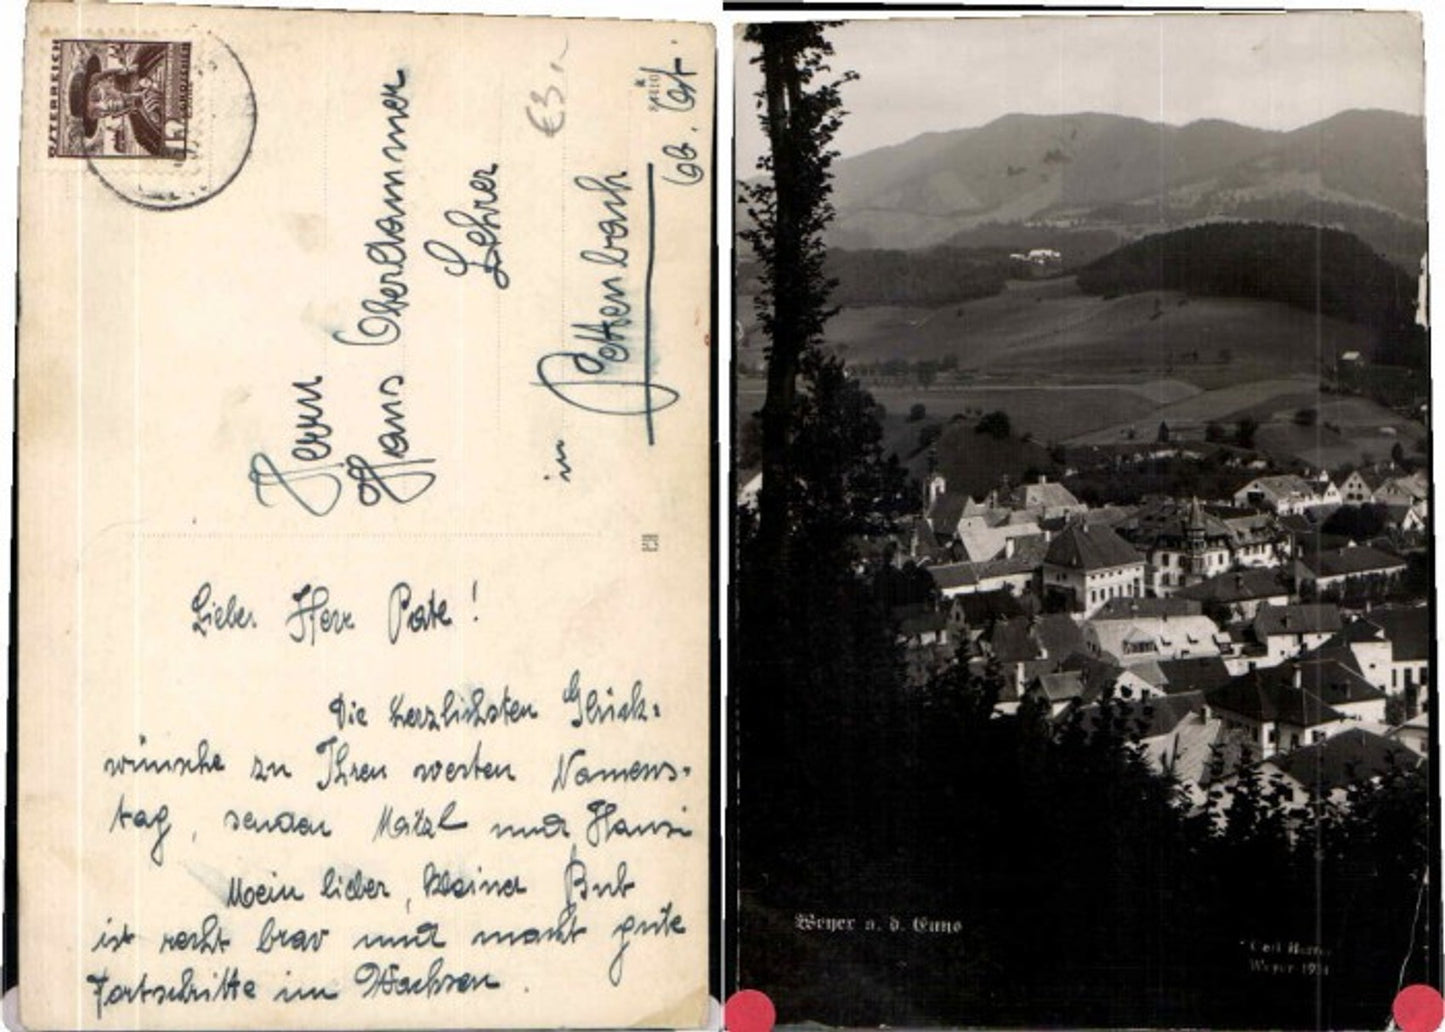 ÖSTERREICH
12 GROSCHEN
€3,-
Herrn
Hans Oberdammer
Lehrer
in Pettenbach
Ob. Öst.
Lieber Herr Pate!
Die herzlichsten Glück-
wünsche zu Ihren werten Namens-
tag, senden und Hansi
Mein lieber, kleiner Bub
ist recht brav und macht gute
Fortschritte im Wachsen.
Weyer a. d. Enns
Carl
Weyer